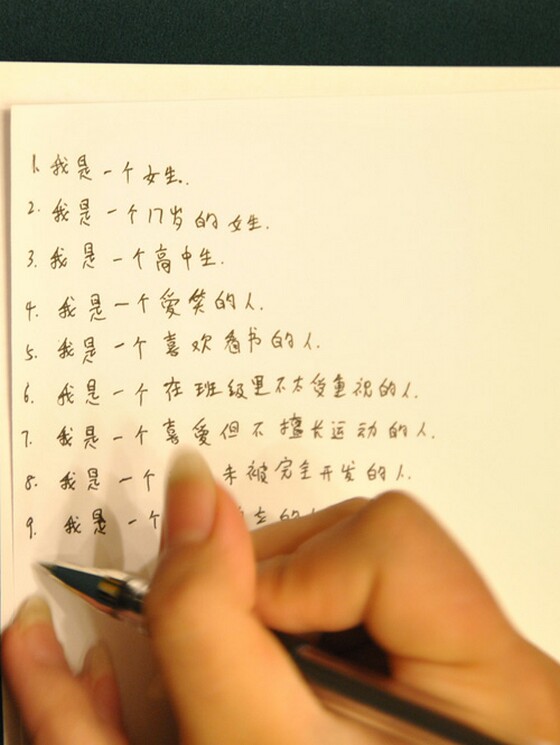 1. 我是一个女生.
2. 我是一个17岁的女生.
3. 我是一个高中生.
4. 我是一个爱笑的人.
5. 我是一个喜欢看书的人.
6. 我是一个在班级里不太受重视的人.
7. 我是一个喜爱但不擅长运动的人.
8. 我是一个 未被完全开发的人.
9. 我是一个 的